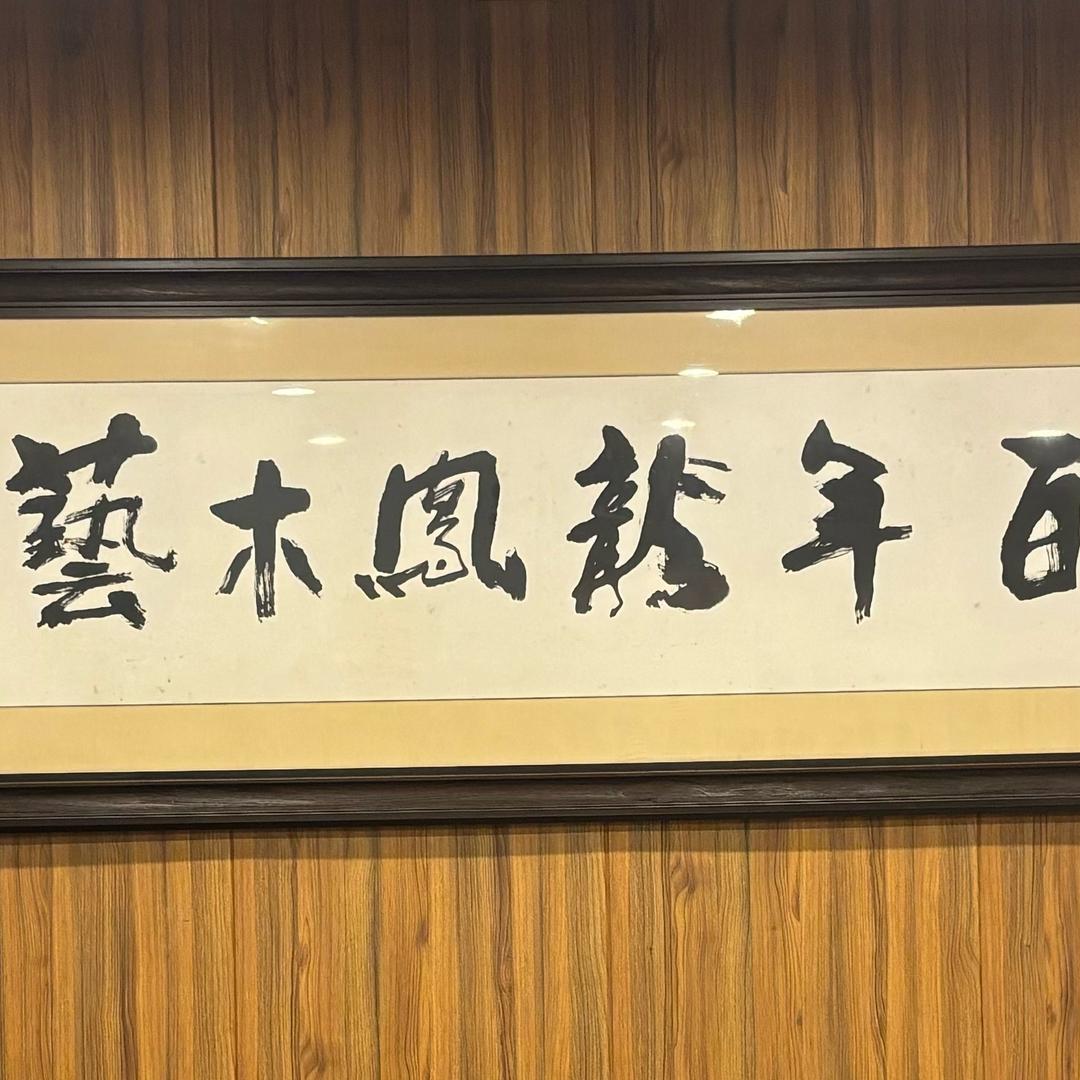 百年龍鳳木藝